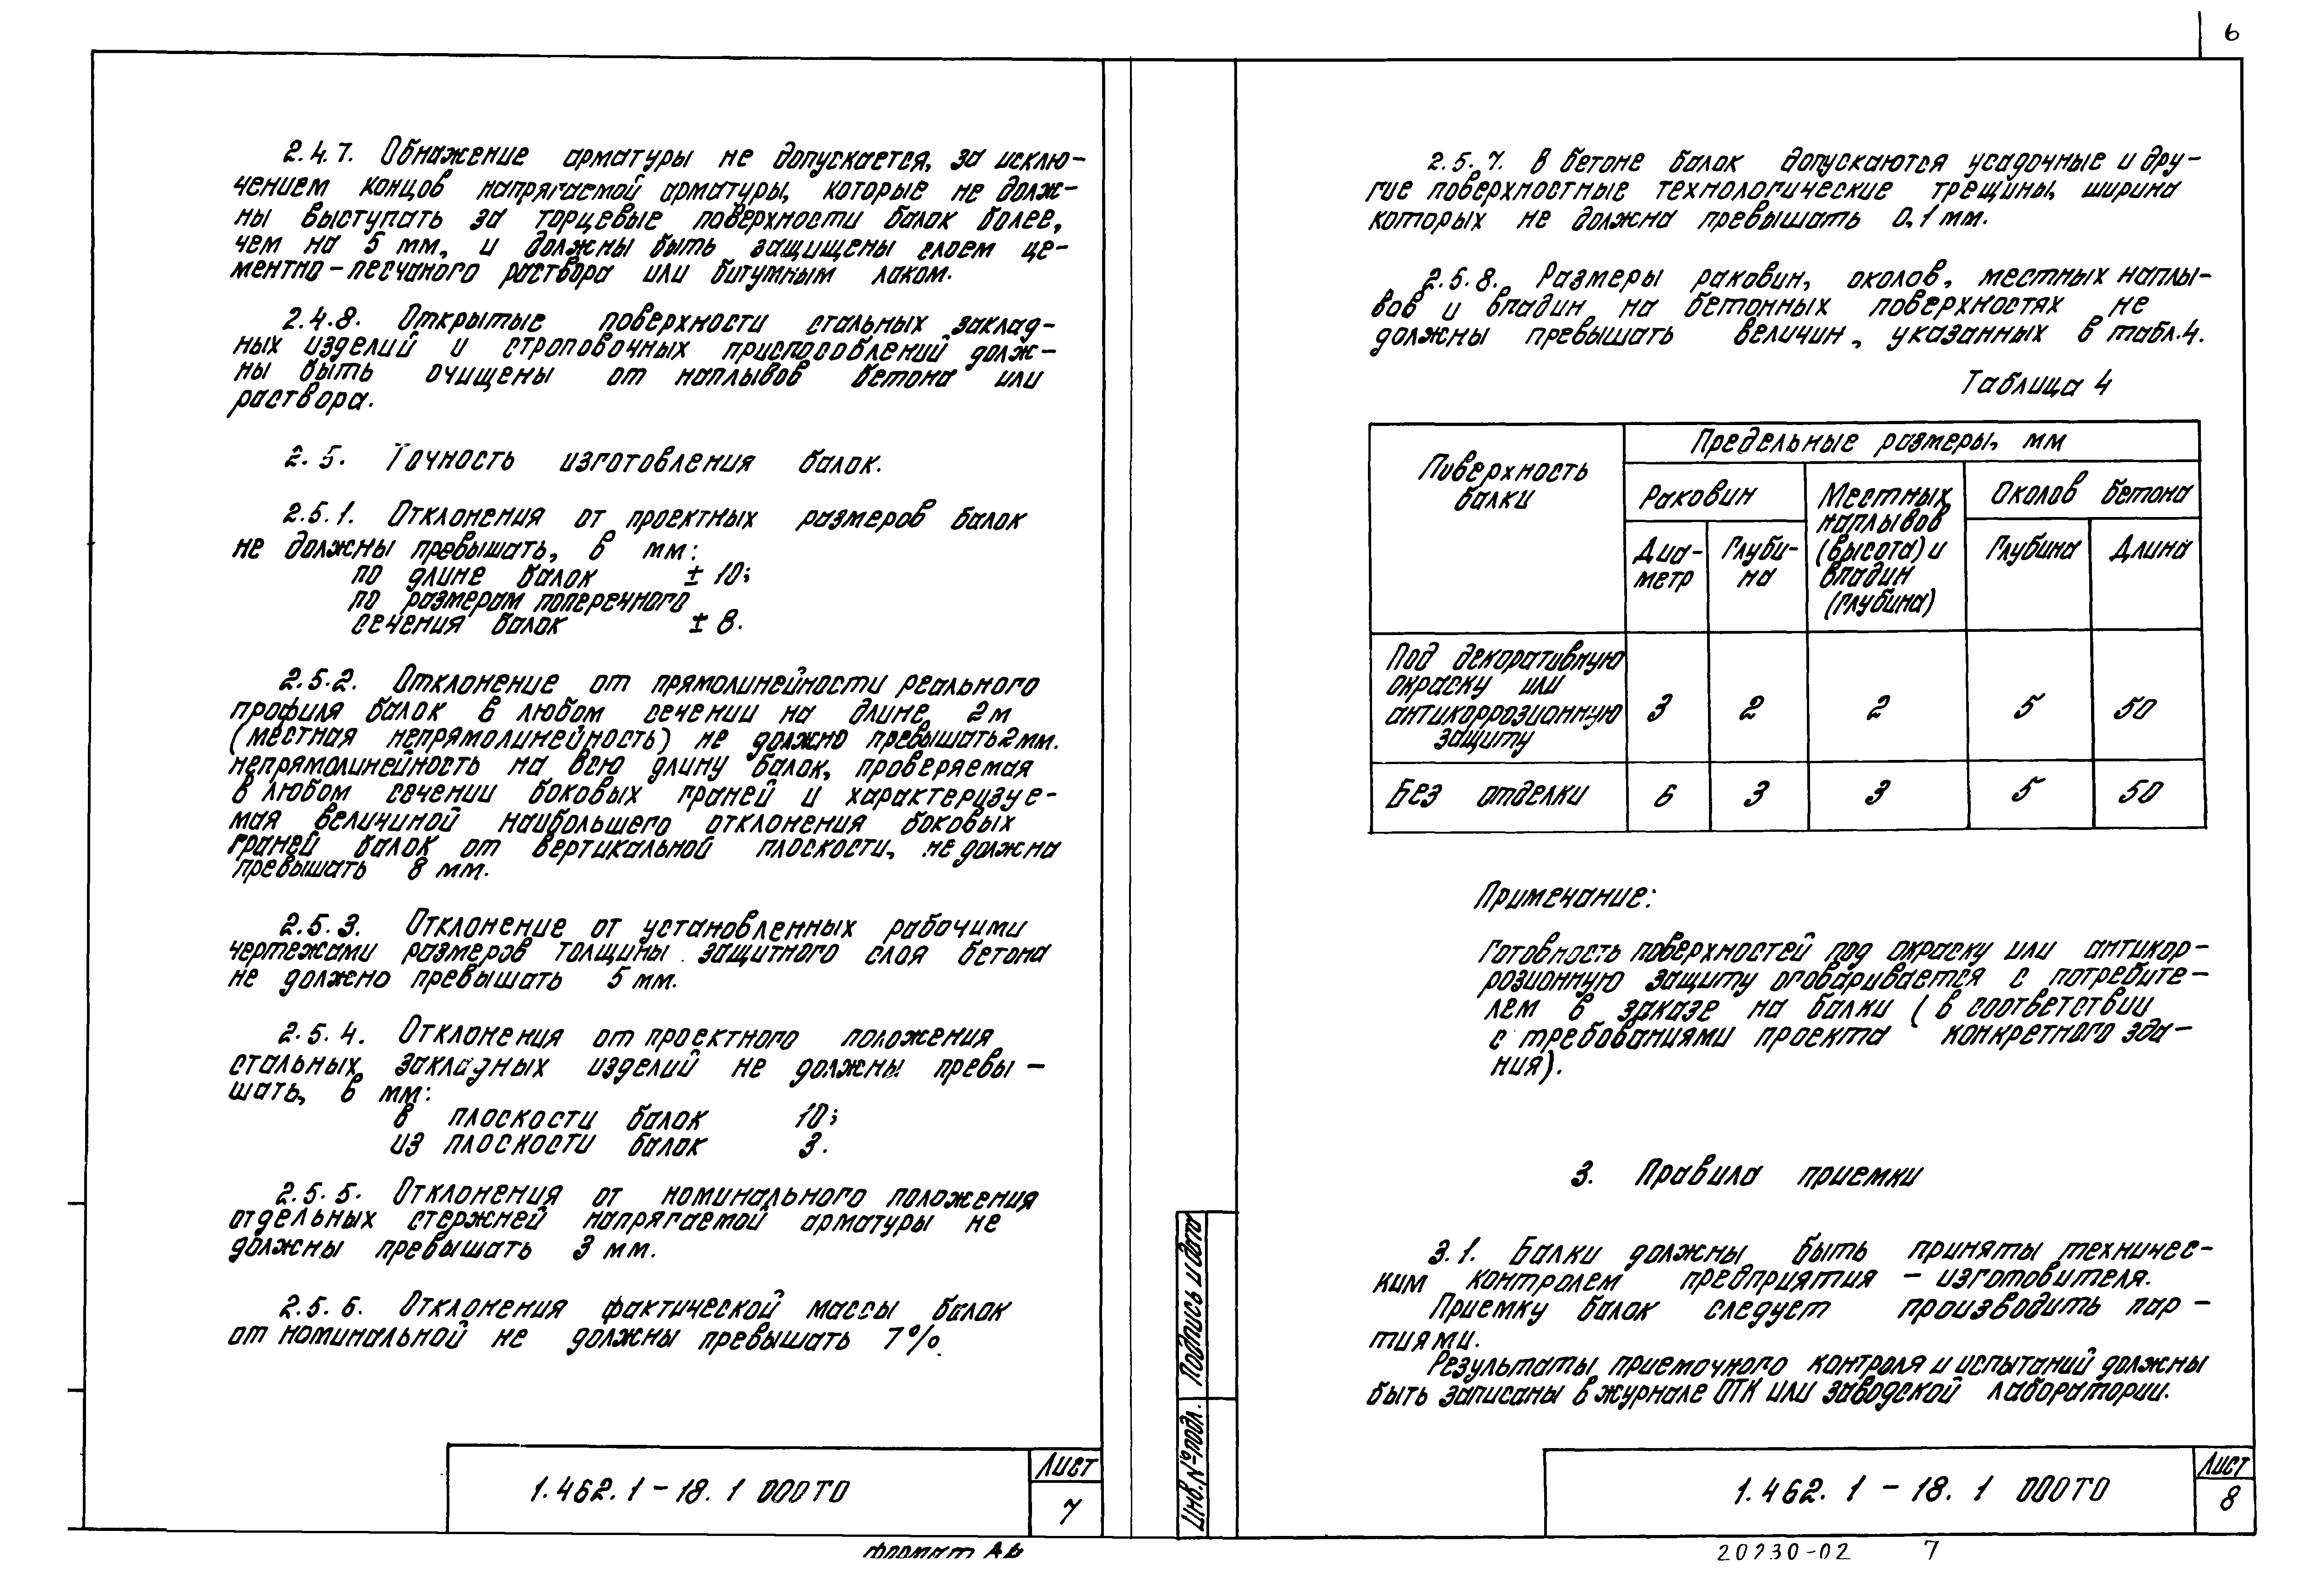 6
2.4.7. Обнажение арматуры не допускается, за исклю-
чением концов напрягаемой арматуры, которые не долж-
ны выступать за торцевые поверхности балок более,
чем на 5 мм, и должны быть защищены слоем це-
ментно-песчаного раствора или битумным лаком.
2.4.8. Открытые поверхности стальных заклад-
ных изделий и строповочных приспособлений долж-
ны быть очищены от наплывов бетона или
раствора.
2.5. Точность изготовления балок.
2.5.1. Отклонения от проектных размеров балок
не должны превышать, в мм:
по длине балок ± 10;
по размерам поперечного
сечения балок ± 8.
2.5.2. Отклонение от прямолинейности реального
профиля балок в любом сечении на длине 2 м
(местная непрямолинейность) не должно превышать 2 мм.
непрямолинейность на всю длину балок, проверяемая
в любом сечении боковых граней и характеризуе-
мая величиной наибольшего отклонения боковых
граней балок от вертикальной плоскости, не должна
превышать 8 мм.
2.5.3. Отклонение от установленных рабочими
чертежами размеров толщины защитного слоя бетона
не должно превышать 5 мм.
2.5.4. Отклонения от проектного положения
стальных закладных изделий не должны превы-
шать, в мм:
в плоскости балок 10;
из плоскости балок 3.
2.5.5. Отклонения от номинального положения
отдельных стержней напрягаемой арматуры не
должны превышать 3 мм.
2.5.6. Отклонения фактической массы балок
от номинальной не должны превышать 7%.
1.462.1-18.1 000ТО
Лист
7
формат А4
2.5.7. В бетоне балок допускаются усадочные и дру-
гие поверхностные технологические трещины, ширина
которых не должна превышать 0,1 мм.
2.5.8. Размеры раковин, околов, местных наплы-
вов и впадин на бетонных поверхностях не
должны превышать величин, указанных в табл.4.
Таблица 4
Поверхность
балки
Предельные размеры, мм
Раковин
Местных
наплывов
(высота) и
впадин
(глубина)
Околов бетона
Диа-
метр
Глуби-
на
Глубина
Длина
Под декоративную
окраску или
антикоррозионную
защиту
3 2 2 5 50
Без отделки 6 3 3 5 50
Примечание:
Готовность поверхностей под окраску или антикор-
розионную защиту оговаривается с потребите-
лем в заказе на балки (в соответствии
с требованиями проекта конкретного зда-
ния).
3. Правила приемки
3.1. Балки должны быть приняты техничес-
ким контролем предприятия - изготовителя.
Приемку балок следует производить пар-
тиями.
Результаты приемочного контроля и испытаний должны
быть записаны в журнале ОТК или заводской лаборатории.
Подпись и дата
Инв.№ подл.
1.462.1-18.1 000ТО
Лист
8
20230-02 7